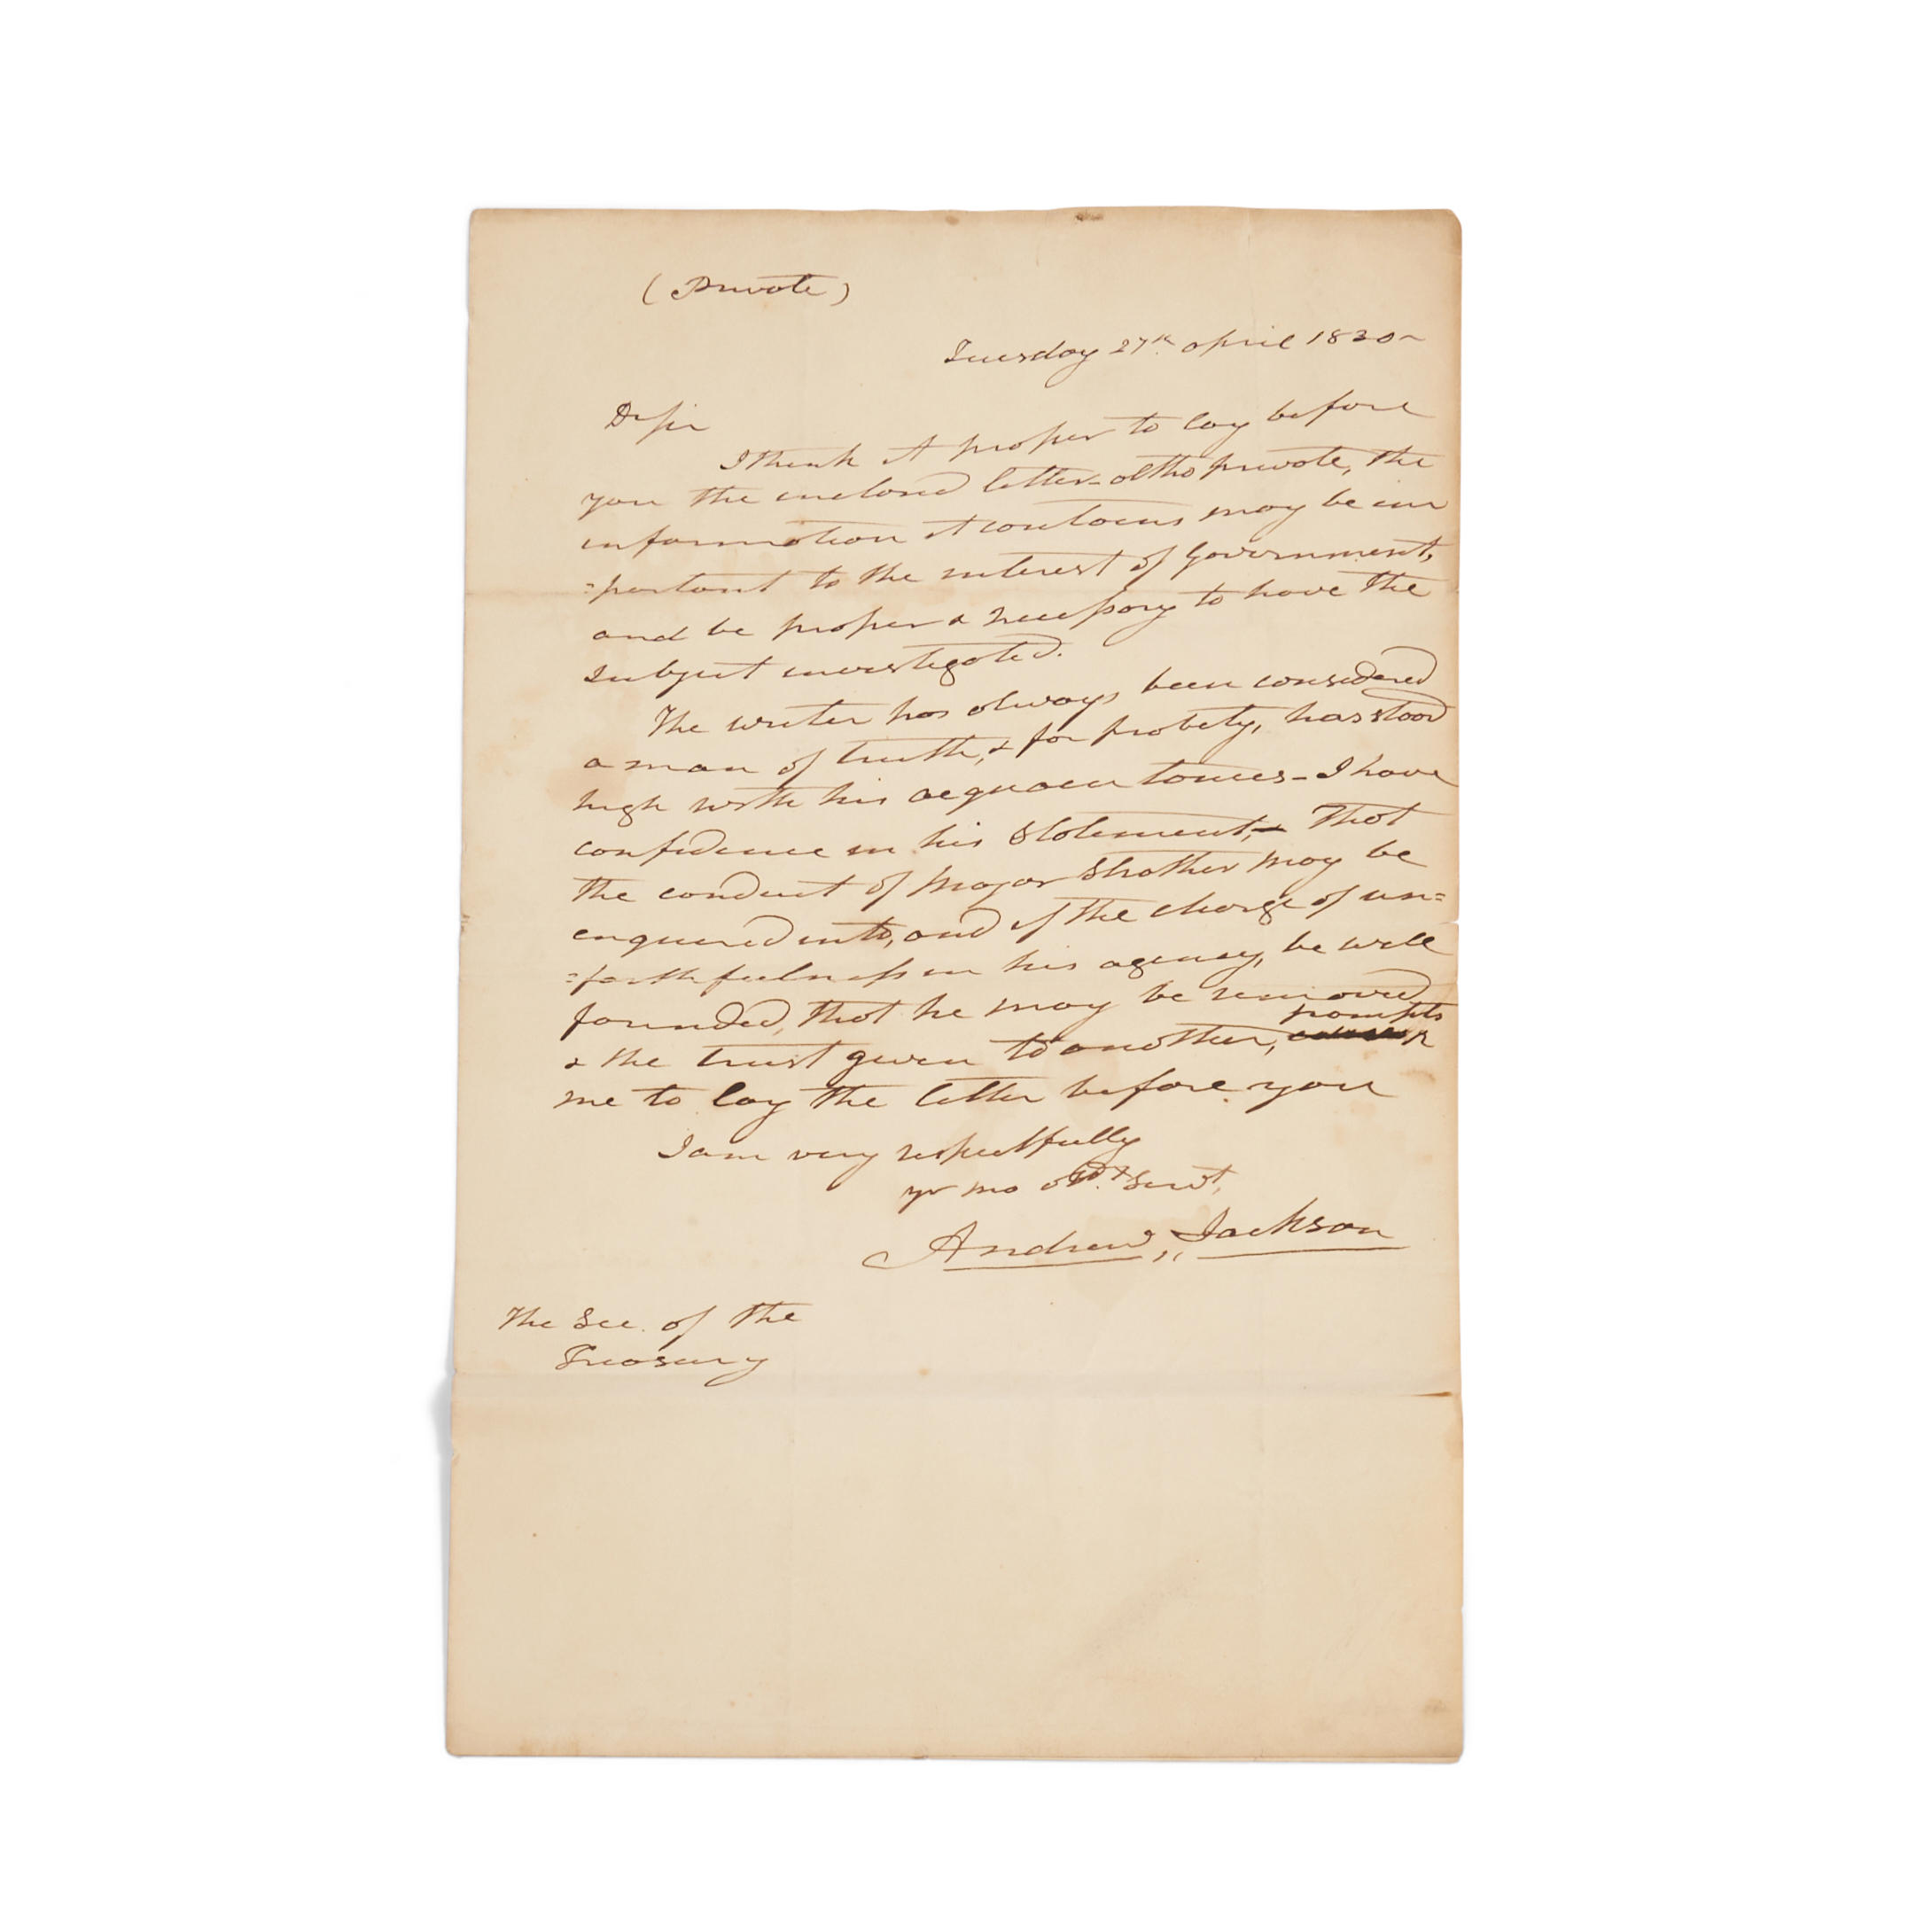 (Private)
Tuesday 27th april 1830-
Dr Sir
I think it proper to lay before
you the enclosed letter - altho private, the
information it contains may be im
=portant to the interest of Government,
and be proper & necessary to have the
subject investigated.
The writer has always been considered
a man of truth, & for probety, has stood
high with his acquaintances - I have
confidence in his statement, - That
the conduct of Major Strother may be
enquired into, and if the charge of un=
=faithfulness in his agency, be well
founded, that he may be removed
prompts
& the trust given to another,
me to lay the letter before you
I am very respectfully
yr mo obdt Servt,
Andrew Jackson
The Sec. of the
Treasury